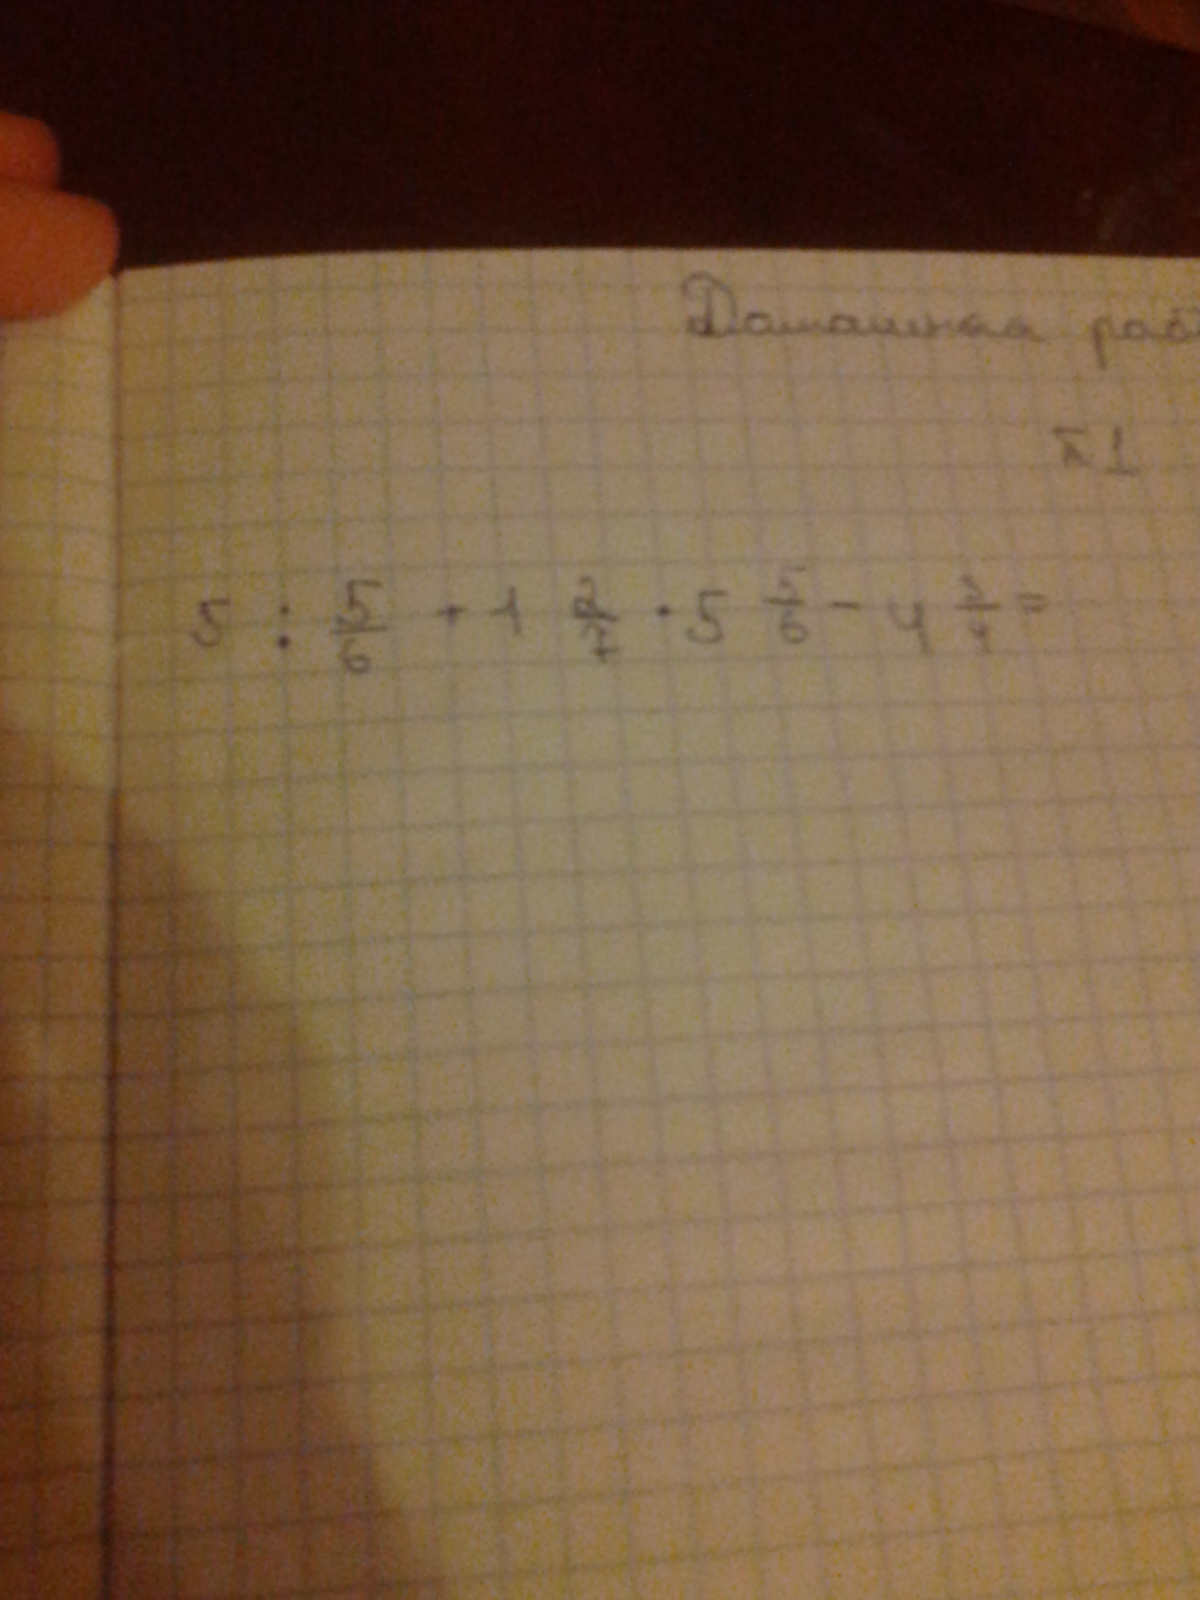 Домашняя раб
№1
5 : 5/6 + 1 2/7 · 5 5/6 - 4 3/4 =